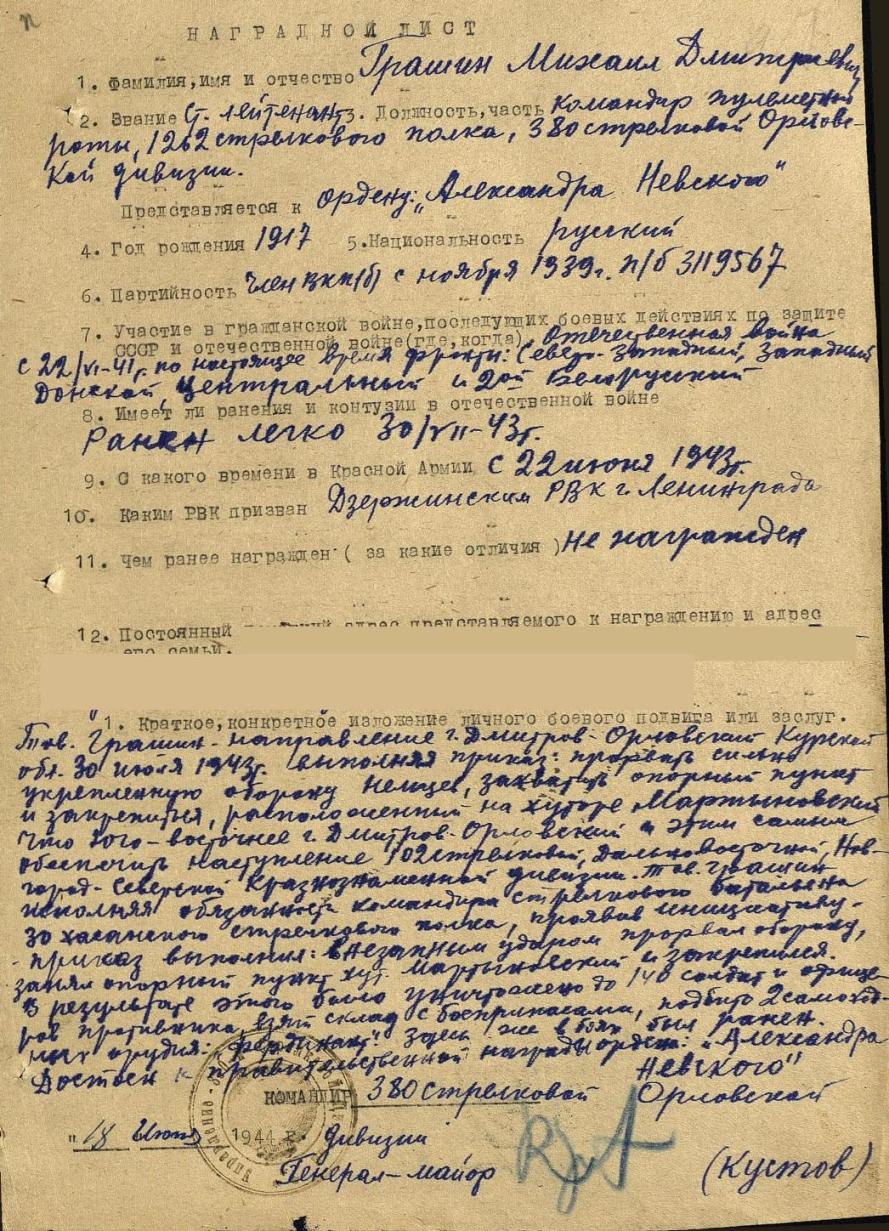 НАГРАДНОЙ ЛИСТ
1. Фамилия,имя и отчество Грашин Михаил Дмитриевич
2. Звание Ст. лейтенант 3. Должность,часть командир пулеметной
роты, 1262 стрелкового полка, 380 стрелковой Орловс-
кой дивизии.
Представляется к ордену: „Александра Невского"
4. Год рождения 1917 5.Национальность русский
6. Партийность член ВКП(б) с ноября 1939г. п/б 3119567
7. Участие в гражданской войне,последующих боевых действиях по защите
СССР и отечественной войне(где,когда) Отечественная война
с 22/VI-41г. по настоящее время фронты: Северо-Западный, Западный
Донской, Центральный и 2ой Белорусский
8. Имеет ли ранения и контузии в отечественной войне
Ранен легко 30/VII-43г.
9. С какого времени в Красной Армии с 22 июня 1943г.
10. Каким РВК призван Дзержинским РВК г. Ленинграда
11. Чем ранее награжден ( за какие отличия ) не награжден
12. Постоянный адрес представляемого к награждению и адрес
его семьи.
1. Краткое,конкретное изложение личного боевого подвига или заслуг.
Тов. Грашин - направление г. Дмитров-Орловский Курской
обл. 30 июля 1943г. выполняя приказ: прорвать сильно
укрепленную оборону немцев, захватить опорный пункт
и закрепиться, расположенный на хуторе Мартыновский
что юго-восточнее г. Дмитров-Орловский и этим самым
обеспечить наступление 102 стрелковой, Дальневосточной, Нов-
город-Северской Краснознаменной дивизии. Тов. Грашин
исполняя обязанность командира стрелкового батальена
30 хасанского стрелкового полка, проявив инициативу-
- приказ выполнил: внезапным ударом прорвал оборону,
занял опорный пункт хут. Мартыновский и закрепился.
В результате этого было уничтожено до 140 солдат и офице-
ров противника, взят склад с боеприпасами, подбито 2 самоход-
ных орудия: „Фердинанд". Здесь же в боях был ранен.
Достоен к правительственной награды орден: „Александра
Невского"
КОМАНДИР 380 стрелковой Орловской
"18 Июня 1944 г. дивизии
Генерал-майор (Кустов)